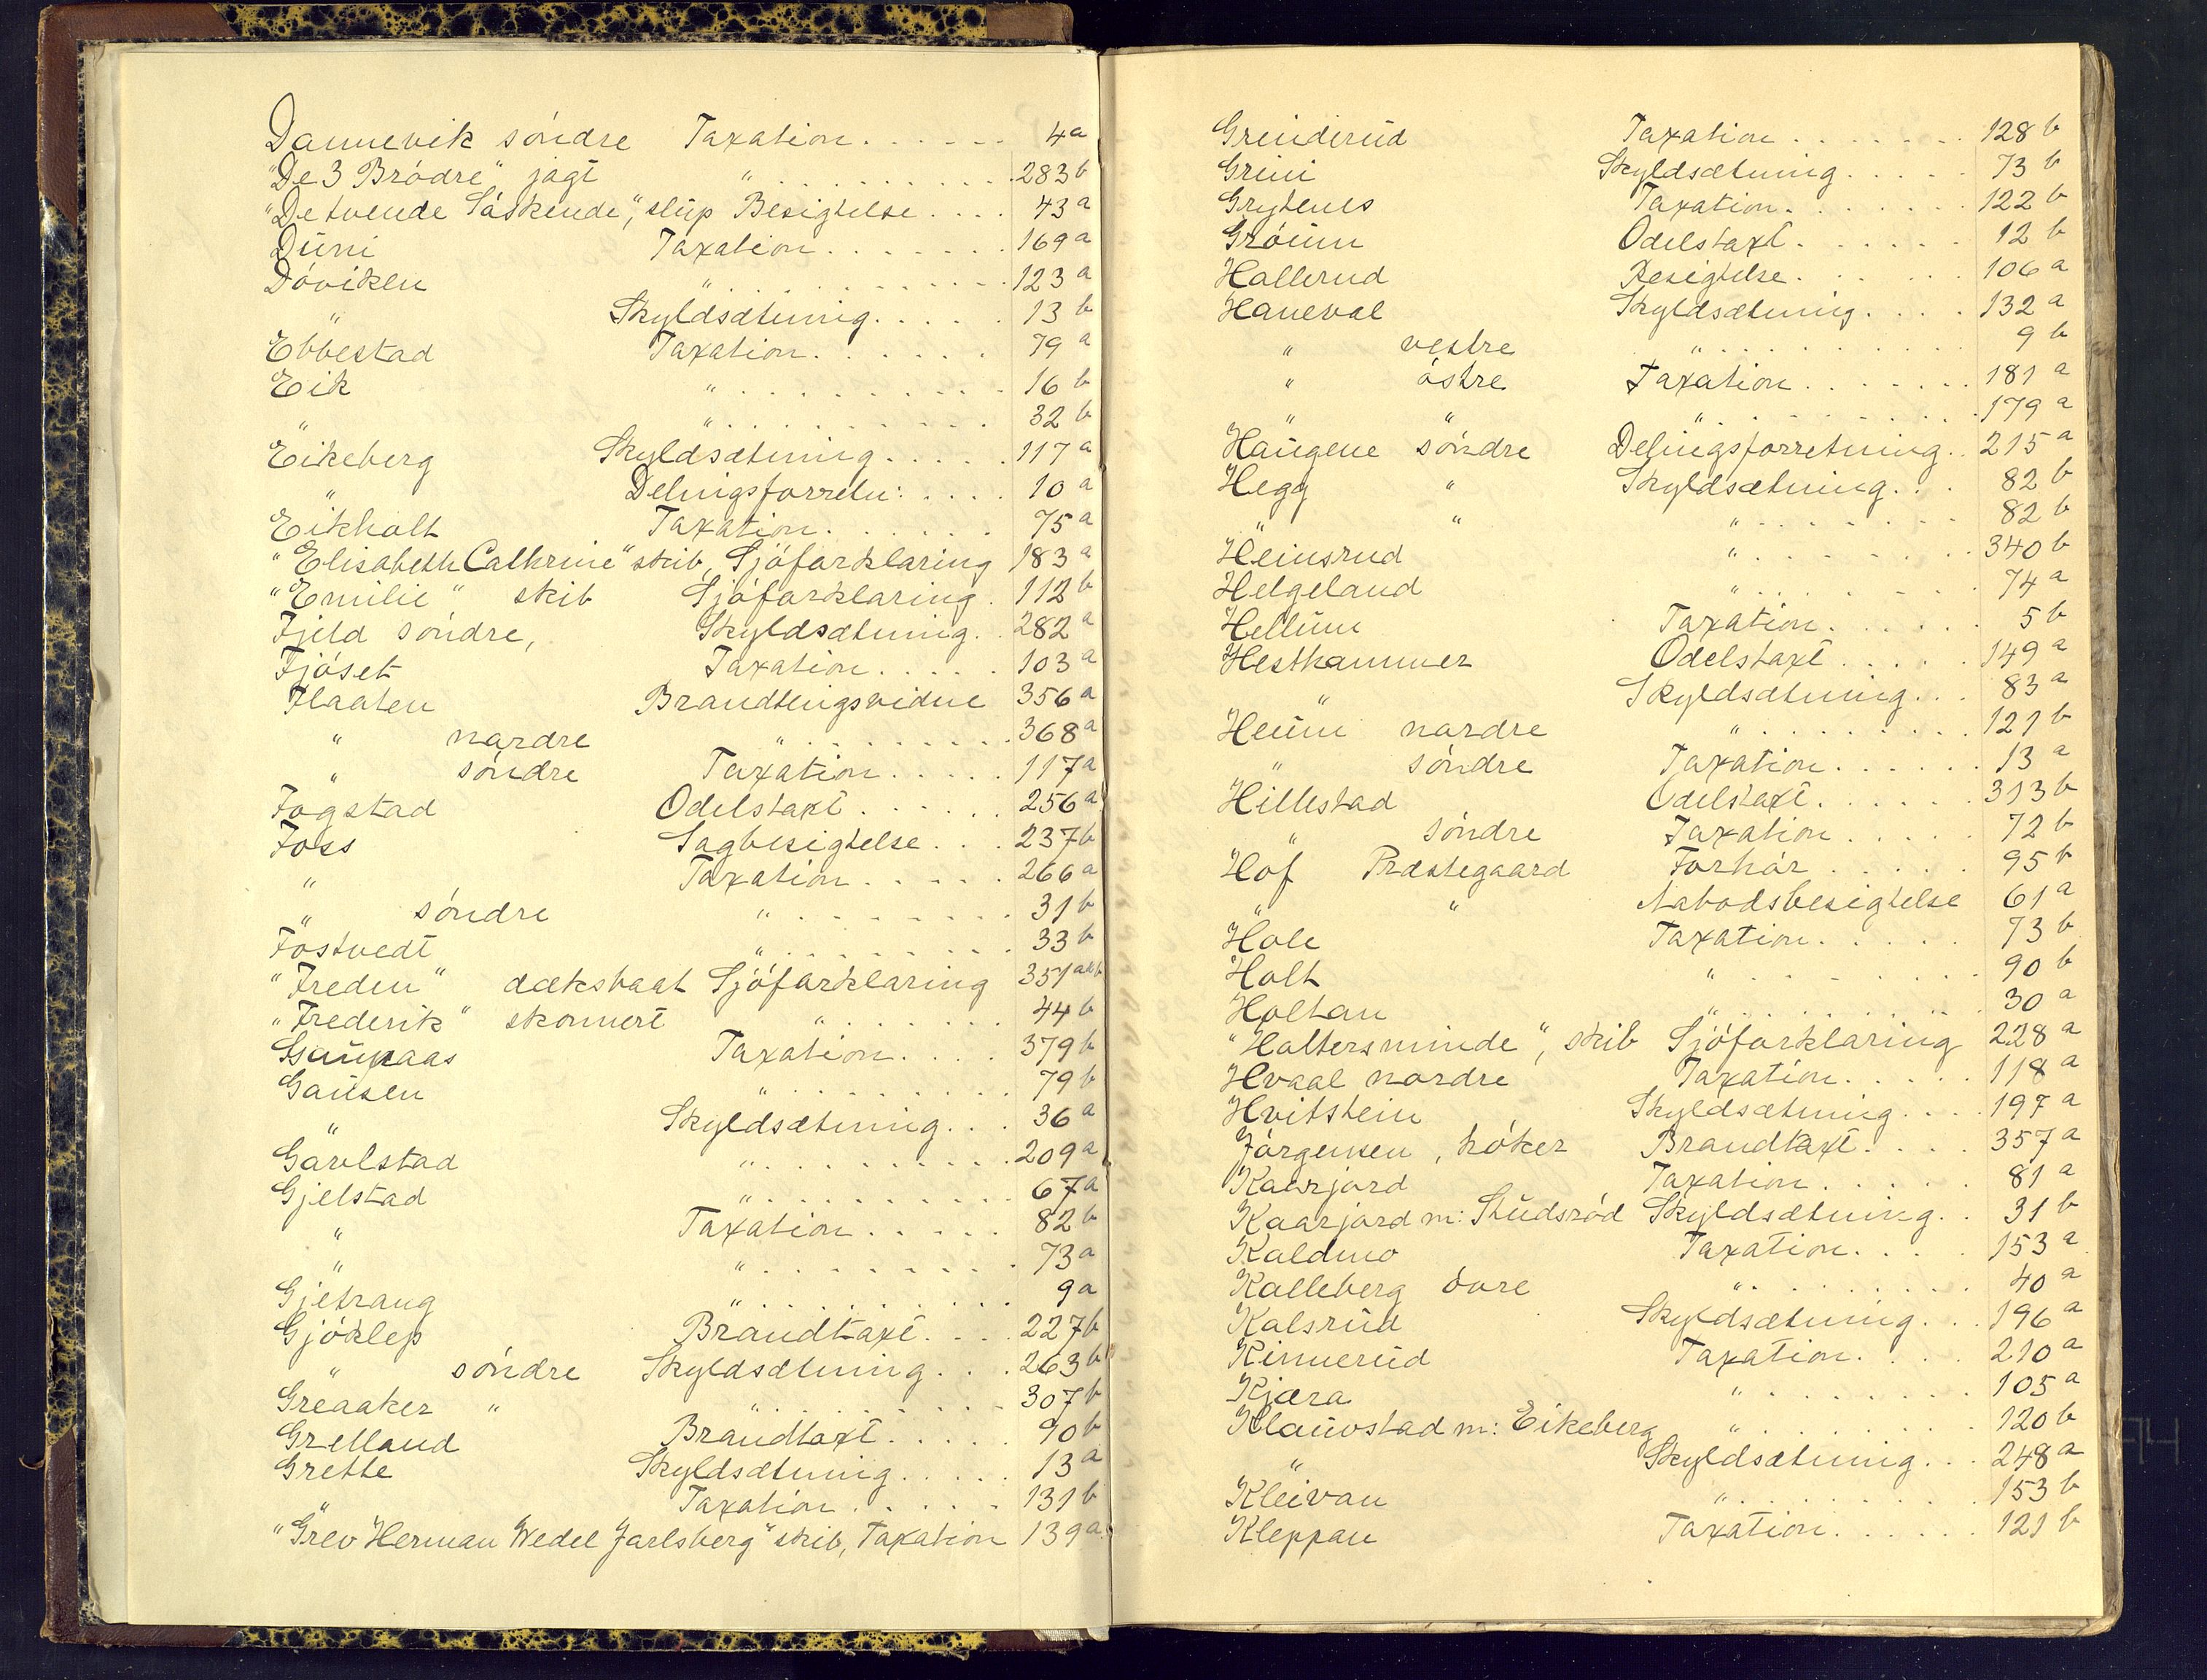 Dannevik söndre Taxation . . . . . . 4a
"De 3 Brödre" jagt " . . . . . . . . . . 283b
"De tvende Söskende", slup Besigtelse . . . . 43a
Duni Taxation . . . . . . . 169a
Döviken " . . . . . . . . . . . 123a
" Skyldsætning . . . . . 13b
Ebbestad Taxation . . . . . . 79a
Eik " . . . . . . . . . . 16b
" " . . . . . . . . . . 32b
Eikeberg Skyldsætning . . . . . 117a
" Delingsforretn: . . . . 10a
Eikholt Taxation . . . . . . 75a
"Elisabeth Cathrine" skib, Sjöforklaring 183a
"Emilie" skib Sjöforklaring . 112b
Fjeld söndre, Skyldsætning . . 282a
Fjöset Taxation . . . . . 103a
Flaaten Brandtingsvidne 356a
" nordre " . . . . . . . . . 368a
" söndre Taxation . . . . . 117a
Fogstad Odelstaxt . . . . . . 256a
Foss Sagbesigtelse . . . 237b
" Taxation . . . . . 266a
" söndre " . . . . . . . . 31b
Fostvedt " . . . . . . . . . 33b
"Freden" dæksbaat Sjöforklaring 351a&b
"Frederik" skonnert " . . . . . . . 44b
Gaupaas Taxation . . . . 379b
Gausen " . . . . . . . . . 79b
" Skyldsætning . . . 36a
Gavlstad " . . . . . . . . . 209a
Gjelstad " . . . . . . . . . . 67a
" Taxation . . . . . 82b
" " . . . . . . . . . 73a
Gjetrang " . . . . . . . . . . 9a
Gjöklep Brandtaxt . . . . 227b
" söndre Skyldsætning . . . 263b
Greaaker " " . . . . . . . . . 307b
Grelland Brandtaxt . . . . . 90b
Grette Skyldsætning . . . . . 13a
" Taxation . . . . . 131b
"Grev Herman Wedel Jarlsberg" skib, Taxation 139a
Grinderud Taxation . . . . . . . 128b
Grini Skyldsætning . . . . . 73b
Grytenes Taxation . . . . . . . 122b
Gröum Odelstaxt . . . . . . 12b
Hallerud Besigtelse . . . . . . 106a
Haneval Skyldsætning . . . . 132a
" vestre " . . . . . . . . . . 9b
" östre Taxation . . . . . . . 181a
" " " . . . . . . . . . . 179a
Haugene söndre Delingsforretning . . 215a
Hegg " Skyldsætning . . . 82b
" " " . . . . . . . . 82b
Heinsrud " . . . . . . . . . 340b
Helgeland " . . . . . . . . 74a
Hellum Taxation . . . . . . 5b
Hesthammer Odelstaxt . . . . . 149a
" Skyldsætning . . . 83a
Heum nordre " . . . . . . . . . 121b
" söndre Taxation . . . . . . 13a
Hillestad Odelstaxt . . . . . . 313b
" söndre Taxation . . . . . 72b
Hof Præstegaard Forhör . . . . . . 95b
" " Aabodsbesigtelse 61a
Hole Taxation . . . . . 73b
Holt " . . . . . . . . . 90b
Holtan " . . . . . . . . . 30a
"Holtersminde", skib Sjöforklaring 228a
Hvaal nordre Taxation . . . . . 118a
Hvitstein Skyldsætning . . . . 197a
Jörgensen, höker Brandtaxt . . . . 357a
Kaarjord Taxation . . . . . 81a
Kaarjord m: Studsröd Skyldsætning . . 31b
Koldmo Taxation . . . . 153a
Kolleberg övre " . . . . . . . . 40a
Kolsrud Skyldsætning . . . 196a
Kinnerud Taxation . . . . 210a
Kjæra " . . . . . . . . 105a
Klauvstad m: Eikeberg " . . . . . . . . 120b
" Skyldsætning . . . 248a
Kleivan " . . . . . . . . . 153b
Kleppan Taxation . . . . . . 121b